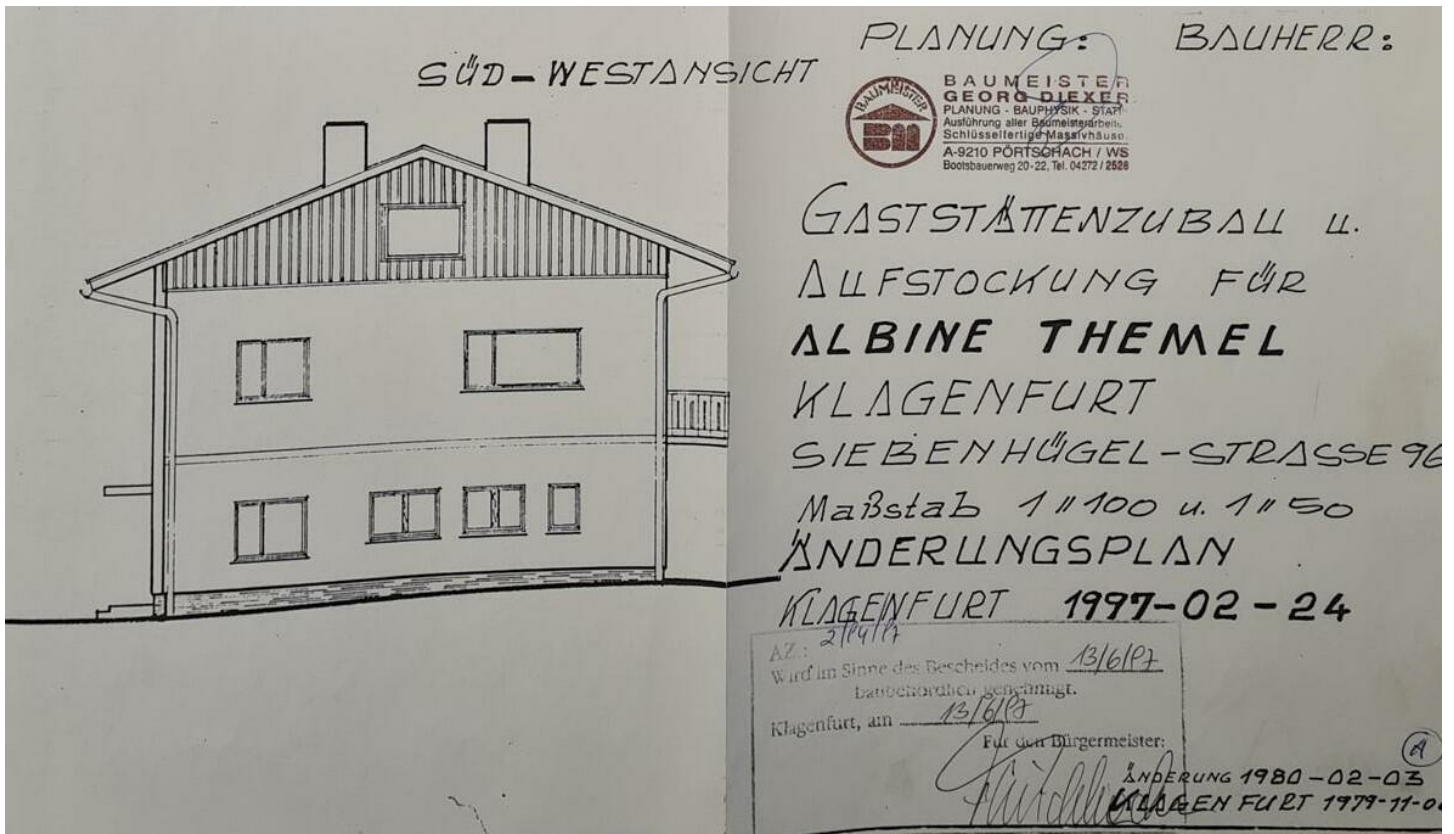 SÜD-WESTANSICHT
PLANUNG: BAUHERR:
BAUMEISTER
BM
BAUMEISTER
GEORG DIEXER
PLANUNG - BAUPHYSIK - STATI
Ausführung aller Baumeisterarbeit
Schlüsselfertige Massivhäuse
A-9210 PÖRTSCHACH / WS
Bootsbauerweg 20-22, Tel. 04272 / 2528
GASTSTÄTTENZUBAU u.
AUFSTOCKUNG FÜR
ALBINE THEMEL
KLAGENFURT
SIEBENHÜGEL-STRASSE 96
Maßstab 1 " 100 u. 1 " 50
ÄNDERUNGSPLAN
KLAGENFURT 1997-02-24
AZ.:
Wird im Sinne des Bescheides vom 13/6/97
baubehördlich genehmigt.
Klagenfurt, am 13/6/97
Für den Bürgermeister:
A
ÄNDERUNG 1980-02-03
KLAGENFURT 1979-11-0